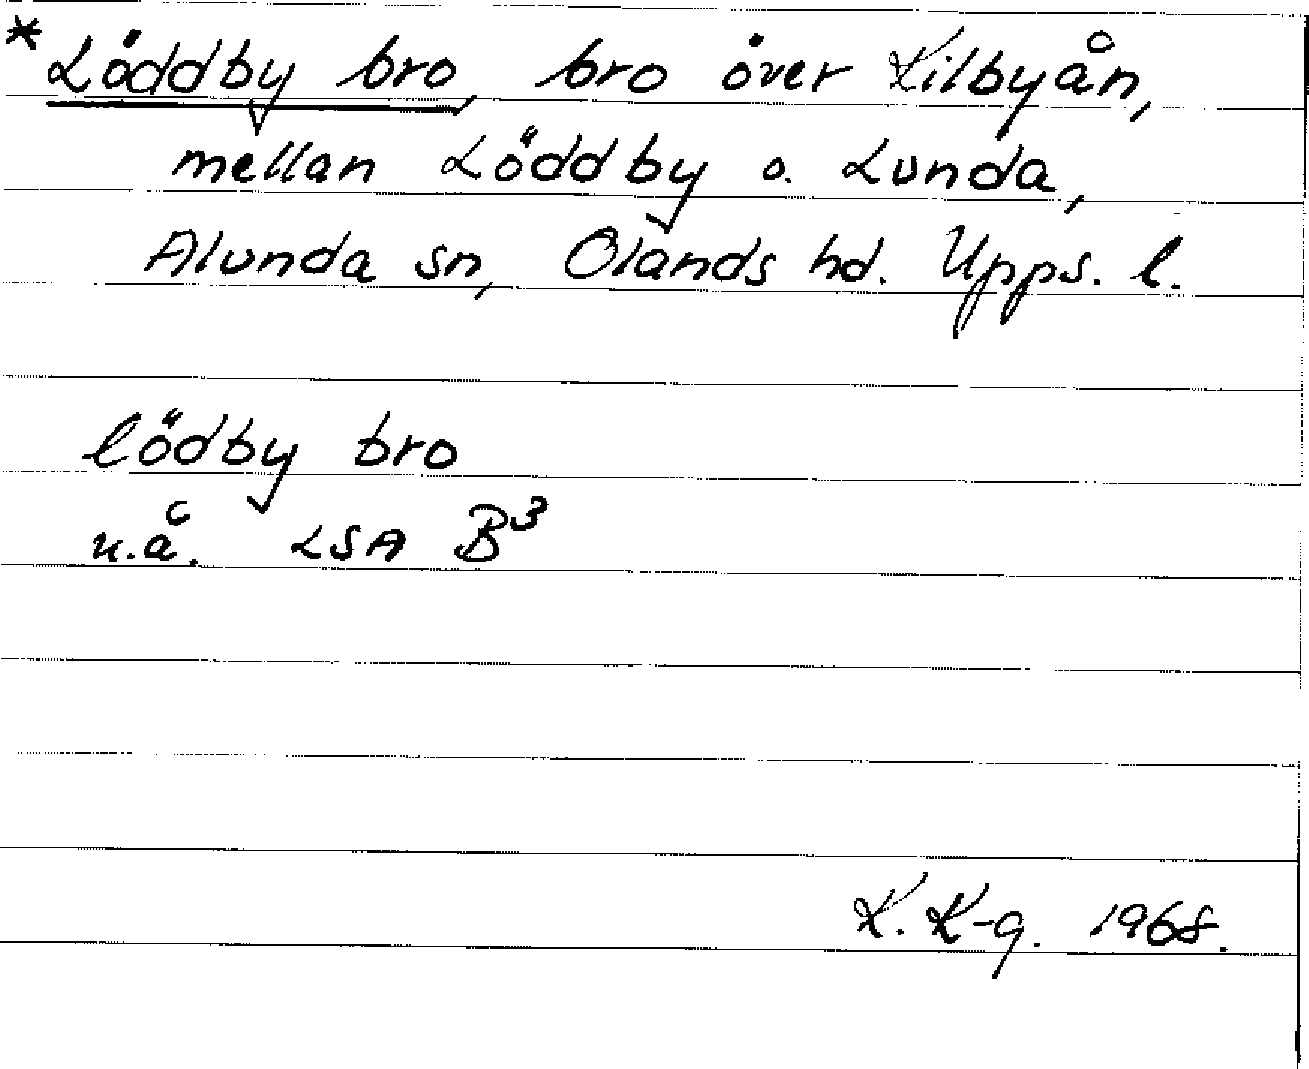 *Löddby bro, bro över Kilbyån,
mellan Löddby o. Lunda,
Alunda sn, Olands hd. Upps. l.
lödby bro
u.å. LSA B³
K. K-g. 1968.